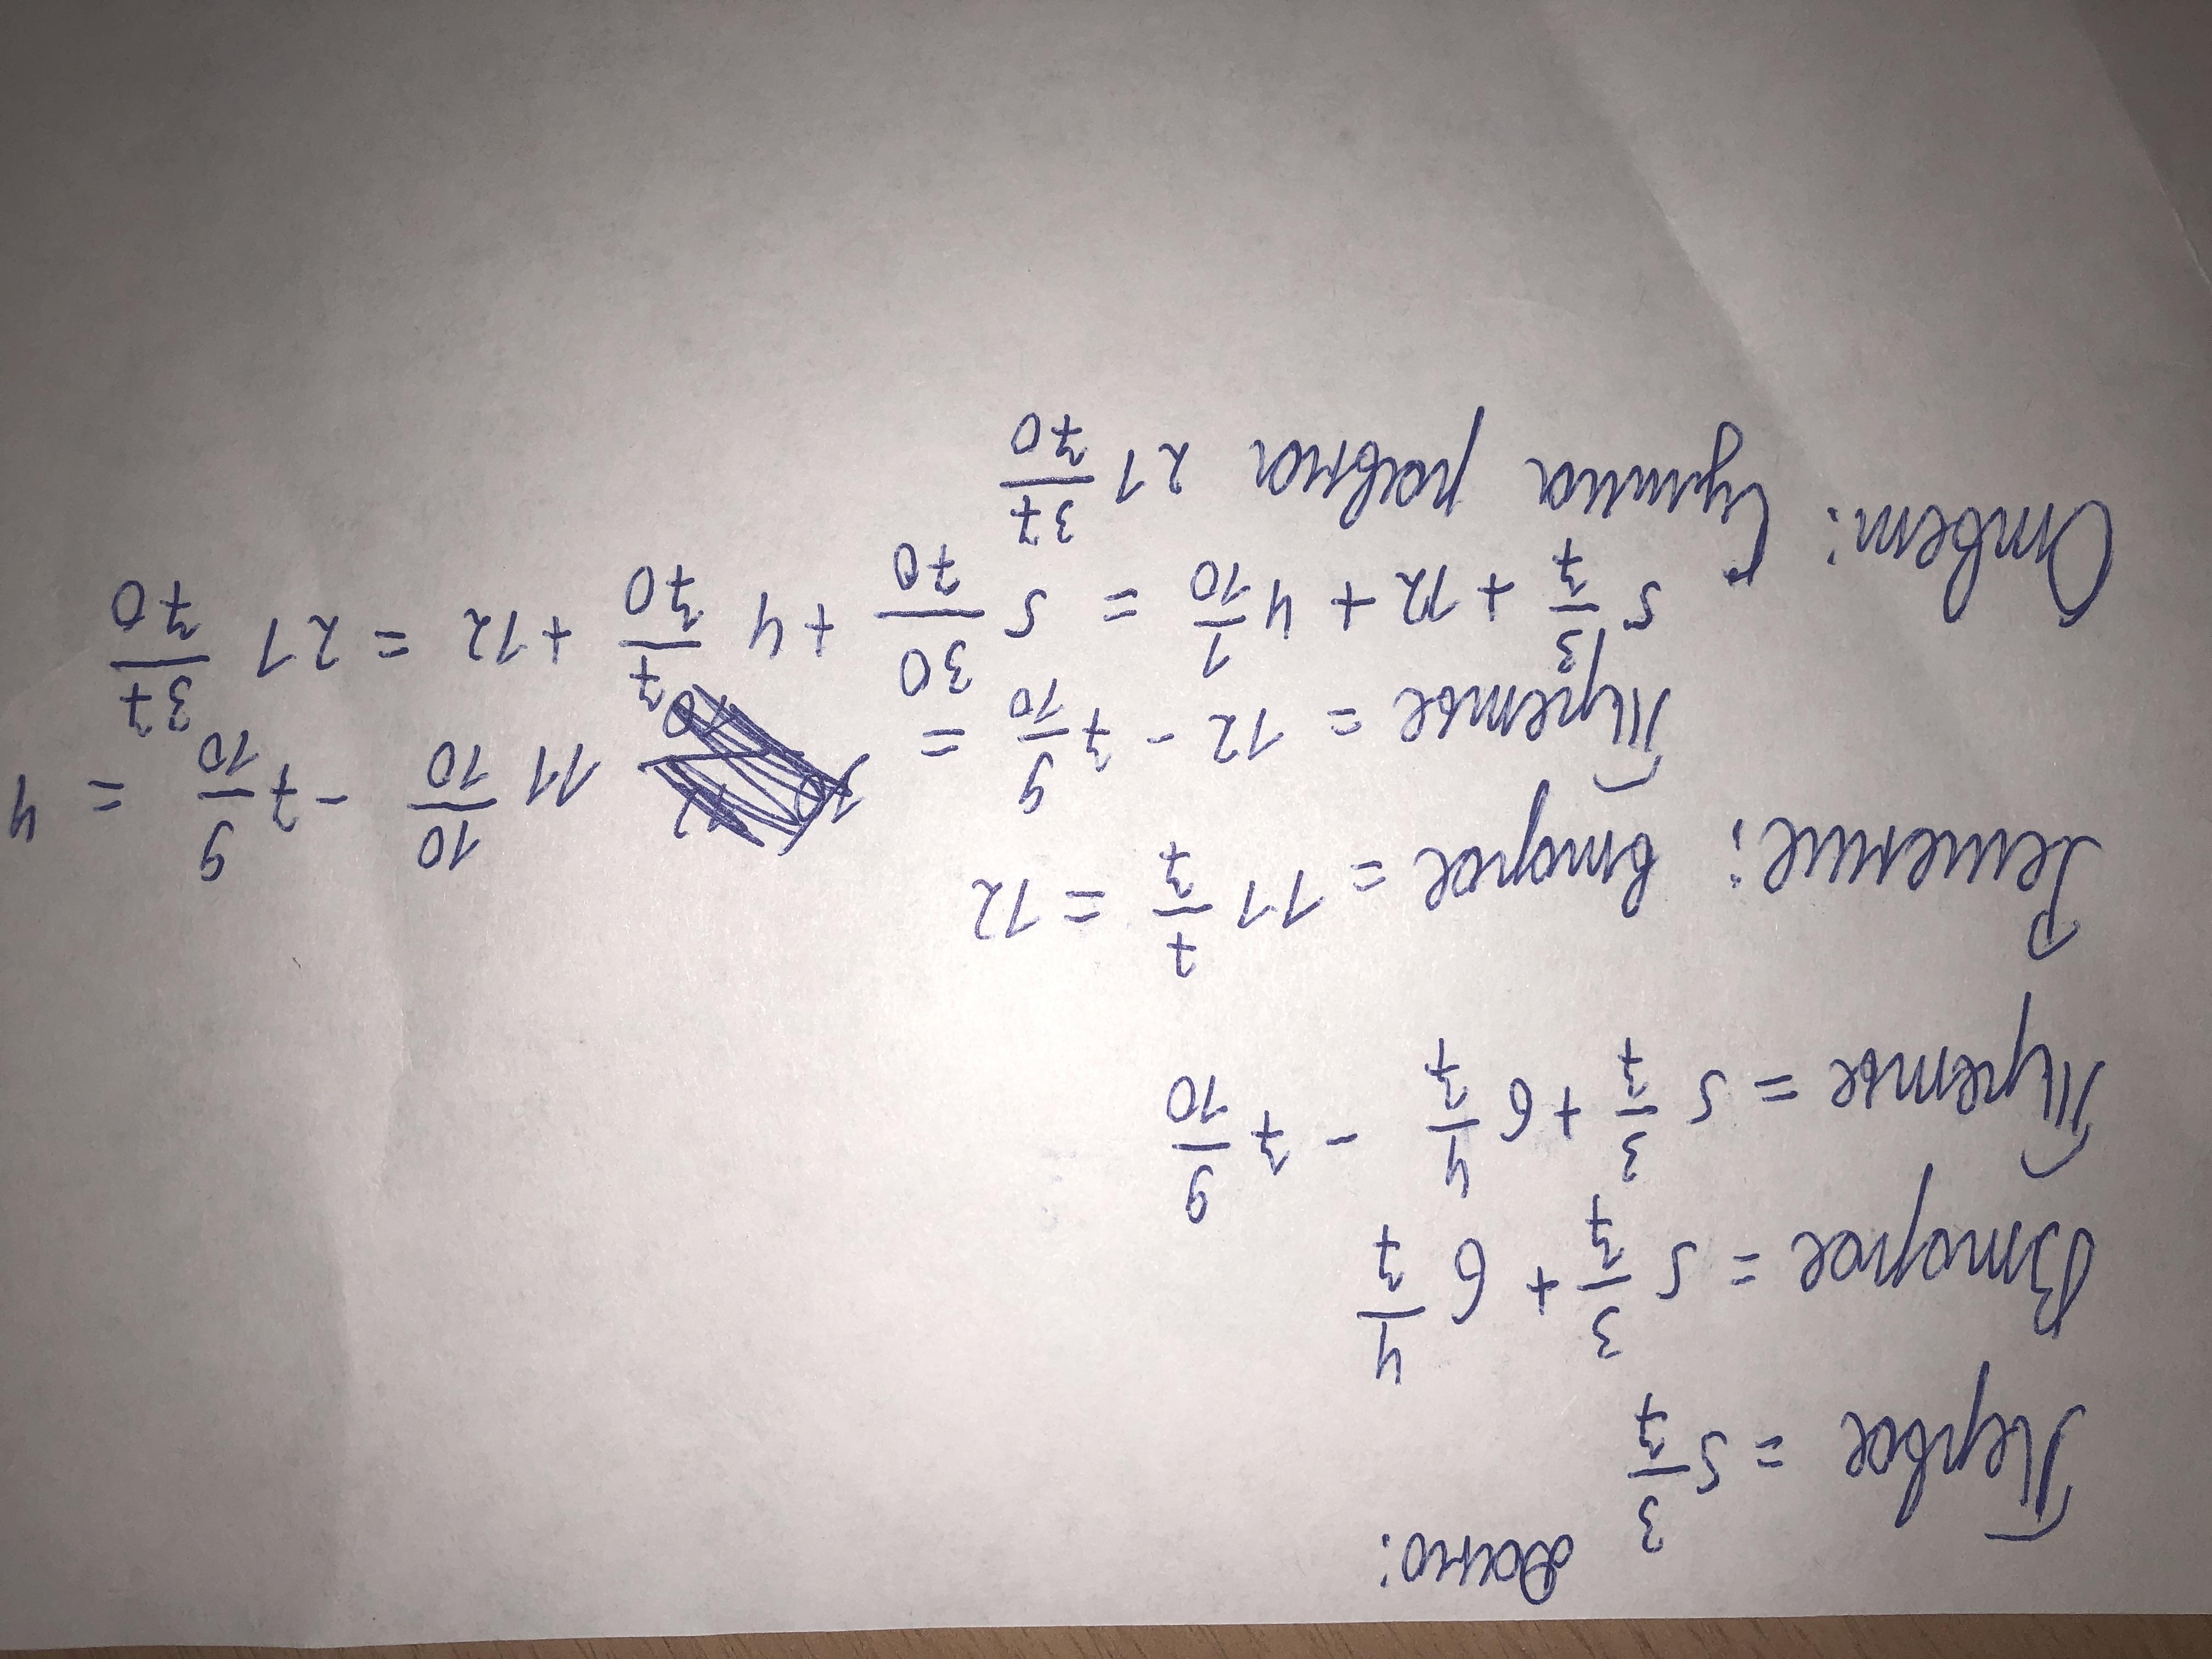 Дано:
Первое = 5 3/7
Второе = 5 3/7 + 6 4/7
Третье = 5 3/7 + 6 4/7 - 7 9/10
Решение: второе = 11 7/7 = 12
Третье = 12 - 7 9/10 = 11 10/10 - 7 9/10 = 4
5 3/7 + 12 + 4 1/10 = 5 30/70 + 4 7/70 + 12 = 21 37/70
Ответ: Сумма равна 21 37/70